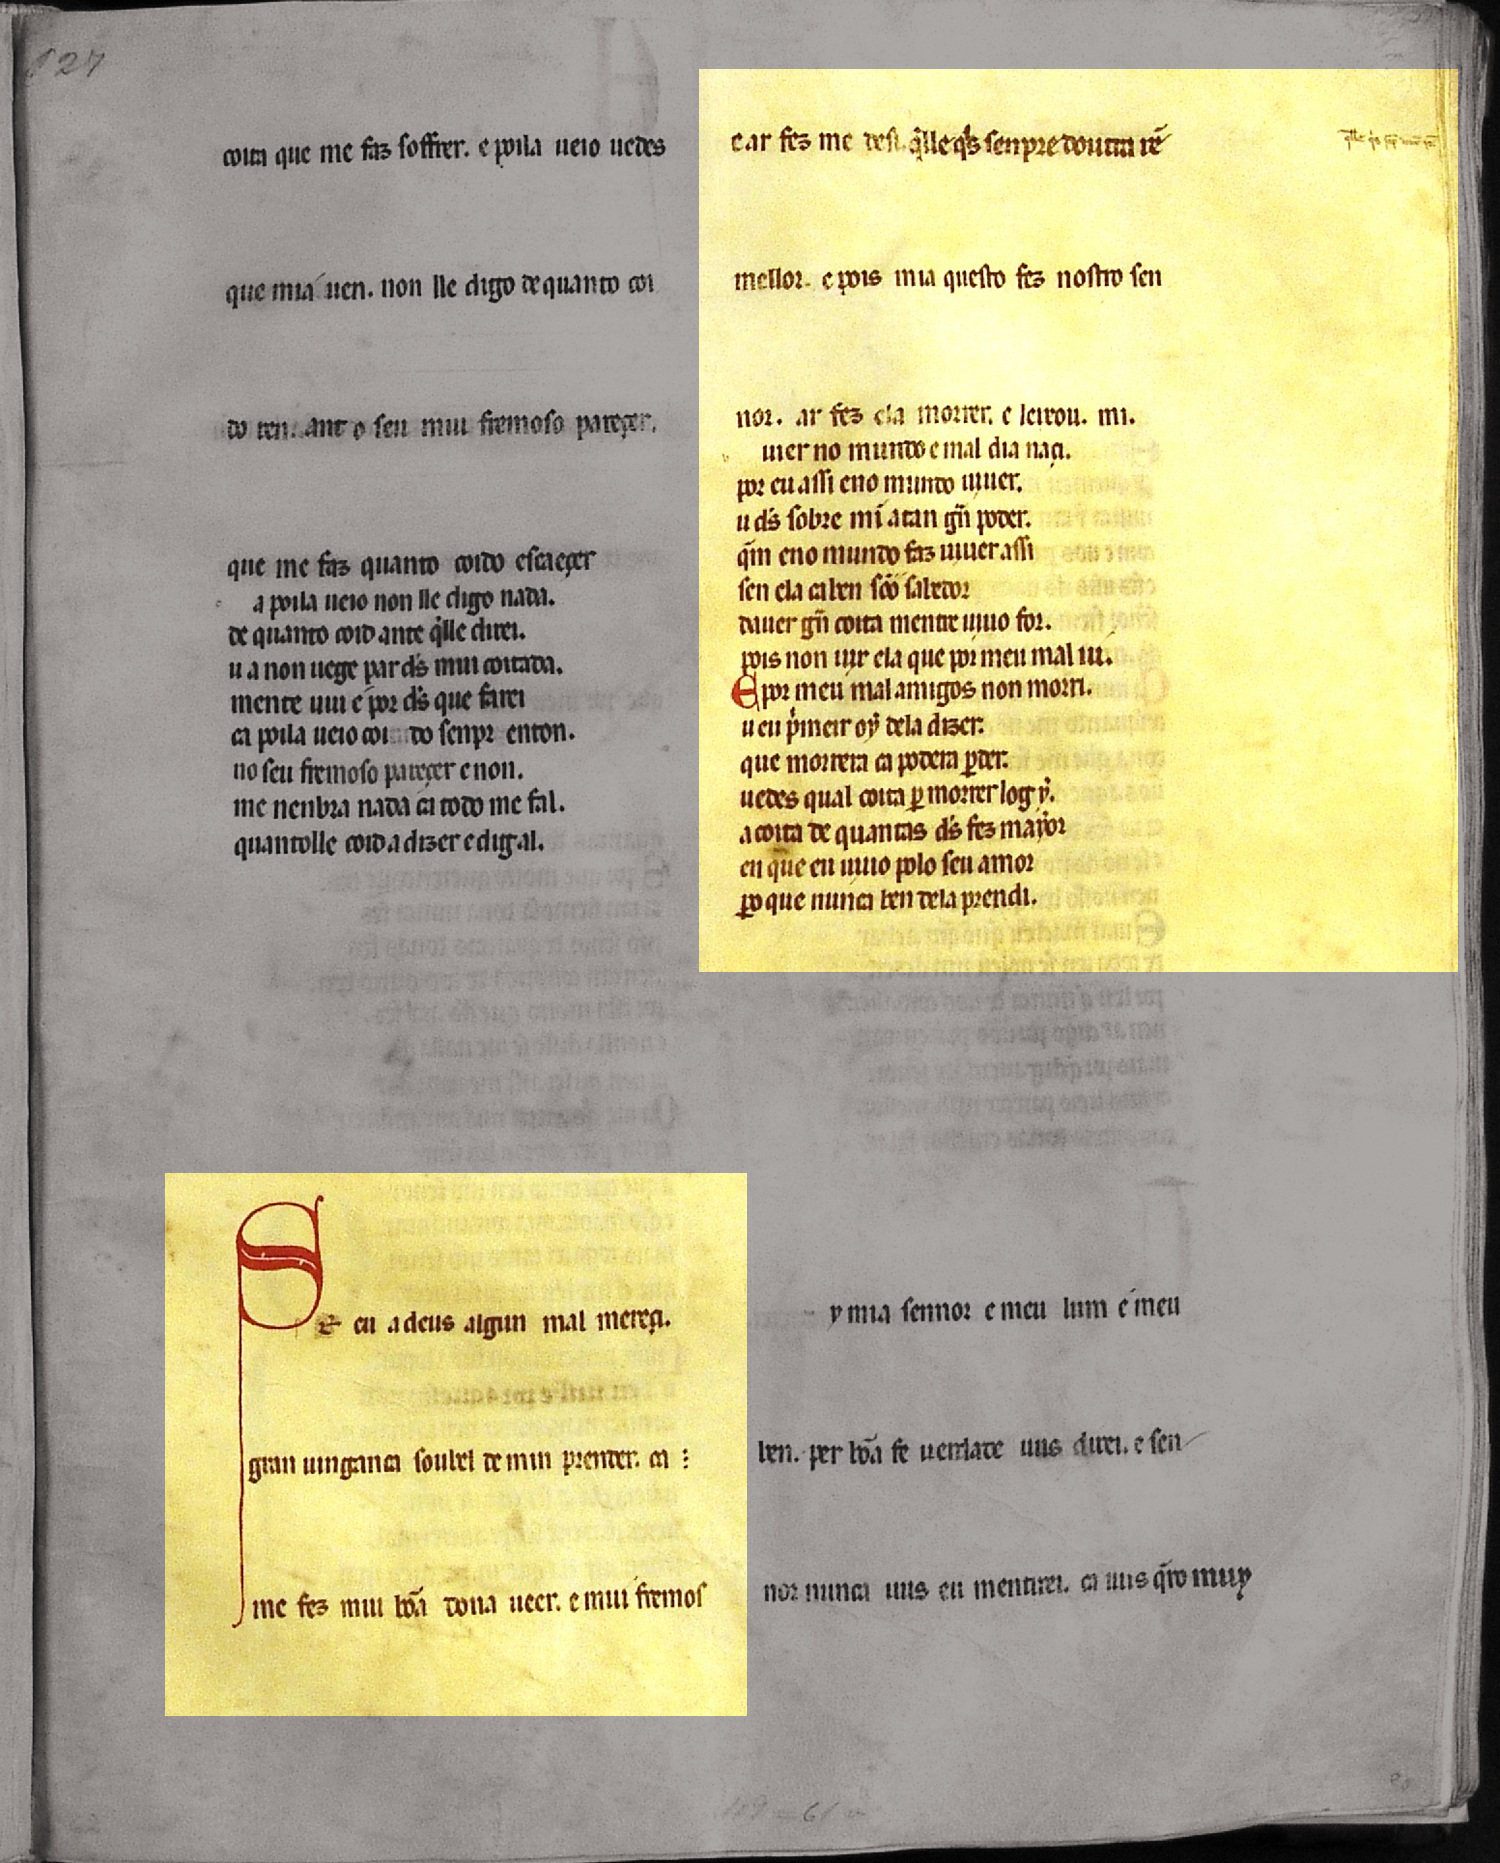 127
coita que me faz soffrer. e poila ueio uedes
que mia uen. non lle digo de quanto coi
do ren. ant o seu mui fremoso pareçer.
que me faz quanto coido escaeçer
a poila ueio non lle digo nada.
de quanto coid ante q̄lle direi.
u a non uege par d̄s mui coitada.
mente uiu e por d̄s que farei
ca poila ueio coi do senpr enton.
no seu fremoso pareçer e non.
me nenbra nada ca todo me fal.
quantolle coid a dizer e dig al.
Se eu a deus algun mal mereçi.
gran uingança soubel de min prender. ca :
me fez mui bōa dona ueer. e mui fremos
e ar fez me desi. q̄lle q̄s senpre doutra rē
mellor. e pois mia questo fez nostro sen
nor. ar fez ela morrer. e leixou. mi.
uiuer no mundo e mal dia naçi.
por eu assi eno mundo uiuer.
u d̄s sobre mi a tan gn̄ poder.
q̄m eno mundo faz uiuer assi
sen ela ca ben sōo sabedor
dauer gn̄ coita mentre uiuo for.
pois non uir ela que por meu mal ui.
E por meu mal amigos non morri.
u eu p̄meir oy dela dizer.
que morrera ca podera ꝑder.
uedes qual coita ꝑ morrer log y.
a coita de quantas d̄s fez mayor
en que eu uiuo polo seu amor
ꝑo que nunca ben dela prendi.
y mia sennor e meu lum e meu
ben. per bōa fe uerdade uus direi. e sen
nor nunca uus eu mentirei. ca uus q̄ro muy